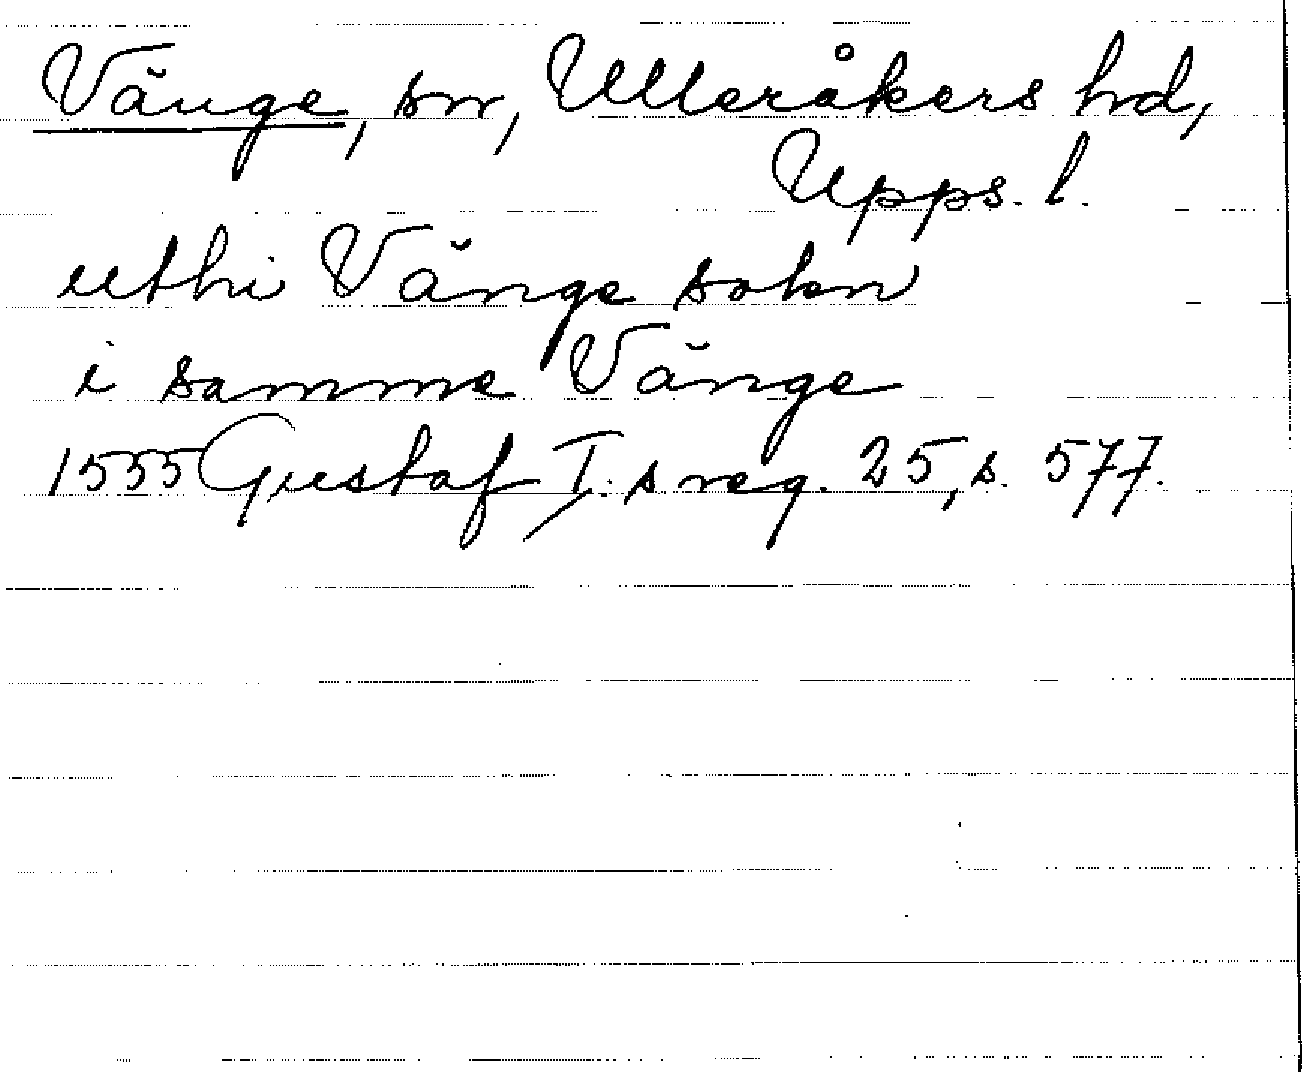 Vänge, sn, Ulleråkers hd,
Upps. l.
uthi Vänge sokn
i samme Vänge
1555 Gustaf I:s reg. 25, s. 577.